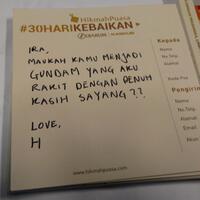 HikmahPuasa
#30HARIKEBAIKAN
IRA,
MAUKAH KAMU MENJADI
GUNDAM YANG AKU
RAKIT DENGAN PENUH
KASIH SAYANG??
LOVE,
H
www.hikmahpuasa.com
Kepada
Nama
No.Telp
Alamat
Kode Pos
Pengirim
Nama
No.Telp
Alamat
Email
Akun